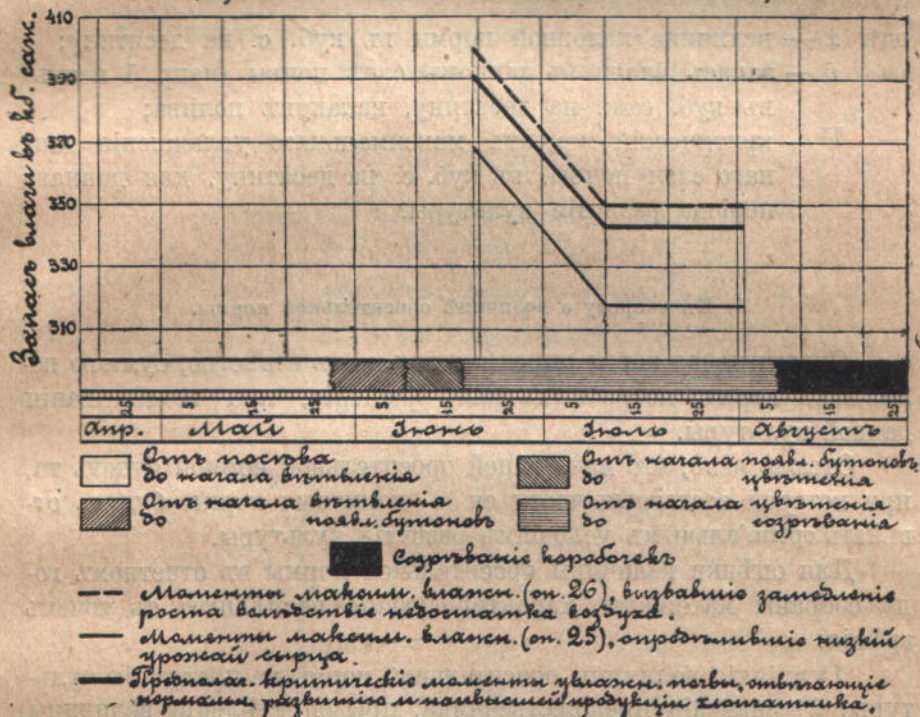 410
390
370
350
330
310
Запасъ влаги въ кб. саж.
25 5 15 25 5 15 25 5 15 25 5 15 25
Апр. Май Іюнь Іюль Августъ
Отъ посѣва
до начала вѣтвленія
Отъ начала появл. бутоновъ
до цвѣтенія
Отъ начала вѣтвленія
до появл. бутоновъ
Отъ начала цвѣтенія
до созрѣванія
Созрѣваніе коробочекъ
Моменты максим. влажн. (оп. 26), вызвавшіе замедленіе
роста вслѣдствіе недостатка воздуха.
Моменты максим. влажн. (оп. 25), опредѣлившіе низкій
урожай сырца.
Предполаг. критическіе моменты увлажн. почвы, отвѣчающіе
нормальн. развитію и наивысшей продукціи хлопчатника.